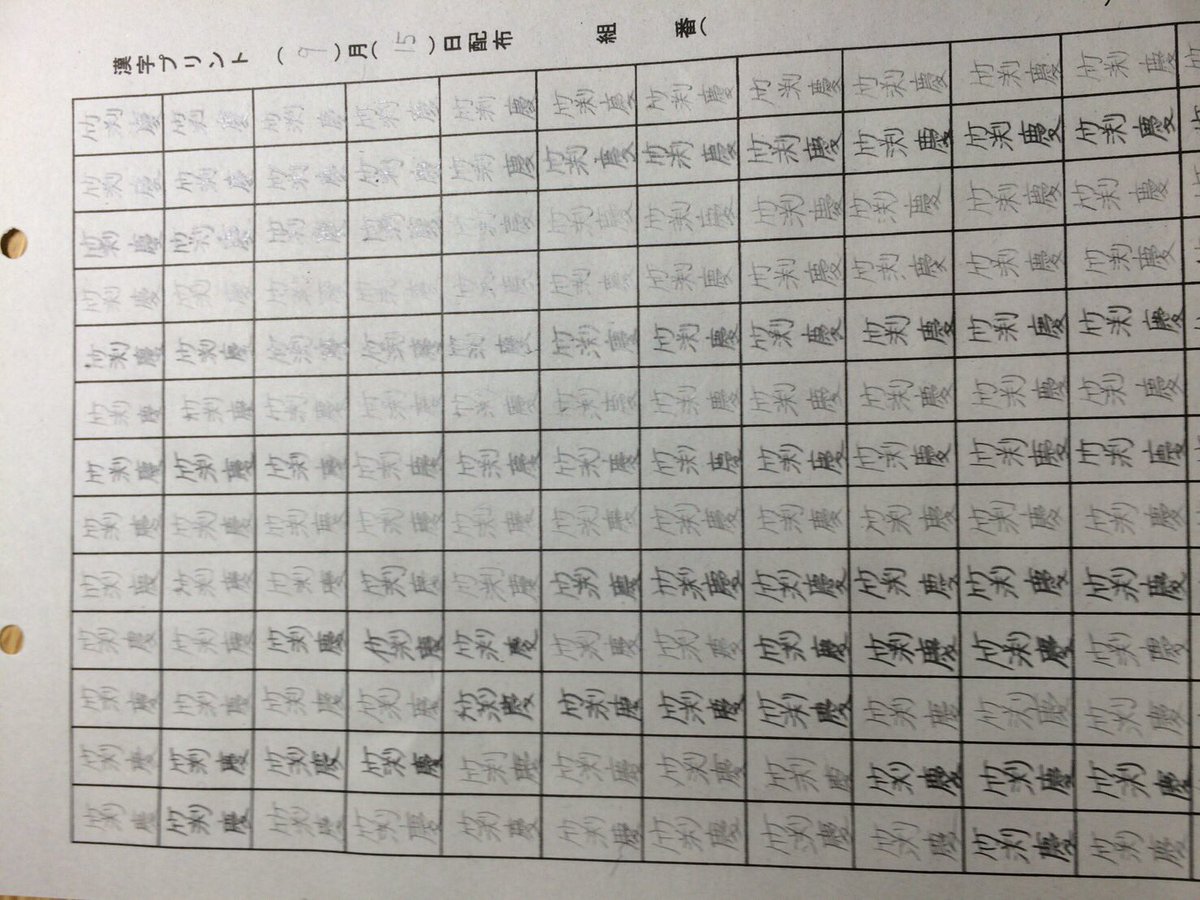 漢字プリント （ 9 ）月（ 15 ）日配布 組 番（
竹渕慶 竹渕慶 竹渕慶 竹渕慶 竹渕慶 竹渕慶 竹渕慶 竹渕慶 竹渕慶 竹渕慶 竹渕慶
竹渕慶 竹渕慶 竹渕慶 竹渕慶 竹渕慶 竹渕慶 竹渕慶 竹渕慶 竹渕慶 竹渕慶 竹渕慶
竹渕慶 竹渕慶 竹渕慶 竹渕慶 竹渕慶 竹渕慶 竹渕慶 竹渕慶 竹渕慶 竹渕慶 竹渕慶
竹渕慶 竹渕慶 竹渕慶 竹渕慶 竹渕慶 竹渕慶 竹渕慶 竹渕慶 竹渕慶 竹渕慶 竹渕慶
竹渕慶 竹渕慶 竹渕慶 竹渕慶 竹渕慶 竹渕慶 竹渕慶 竹渕慶 竹渕慶 竹渕慶 竹渕慶
竹渕慶 竹渕慶 竹渕慶 竹渕慶 竹渕慶 竹渕慶 竹渕慶 竹渕慶 竹渕慶 竹渕慶 竹渕慶
竹渕慶 竹渕慶 竹渕慶 竹渕慶 竹渕慶 竹渕慶 竹渕慶 竹渕慶 竹渕慶 竹渕慶 竹渕慶
竹渕慶 竹渕慶 竹渕慶 竹渕慶 竹渕慶 竹渕慶 竹渕慶 竹渕慶 竹渕慶 竹渕慶 竹渕慶
竹渕慶 竹渕慶 竹渕慶 竹渕慶 竹渕慶 竹渕慶 竹渕慶 竹渕慶 竹渕慶 竹渕慶 竹渕慶
竹渕慶 竹渕慶 竹渕慶 竹渕慶 竹渕慶 竹渕慶 竹渕慶 竹渕慶 竹渕慶 竹渕慶 竹渕慶
竹渕慶 竹渕慶 竹渕慶 竹渕慶 竹渕慶 竹渕慶 竹渕慶 竹渕慶 竹渕慶 竹渕慶 竹渕慶
竹渕慶 竹渕慶 竹渕慶 竹渕慶 竹渕慶 竹渕慶 竹渕慶 竹渕慶 竹渕慶 竹渕慶 竹渕慶
竹渕慶 竹渕慶 竹渕慶 竹渕慶 竹渕慶 竹渕慶 竹渕慶 竹渕慶 竹渕慶 竹渕慶 竹渕慶